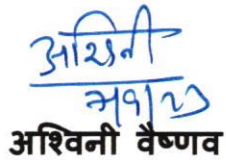 अश्विनी
अश्विनी वैष्णव